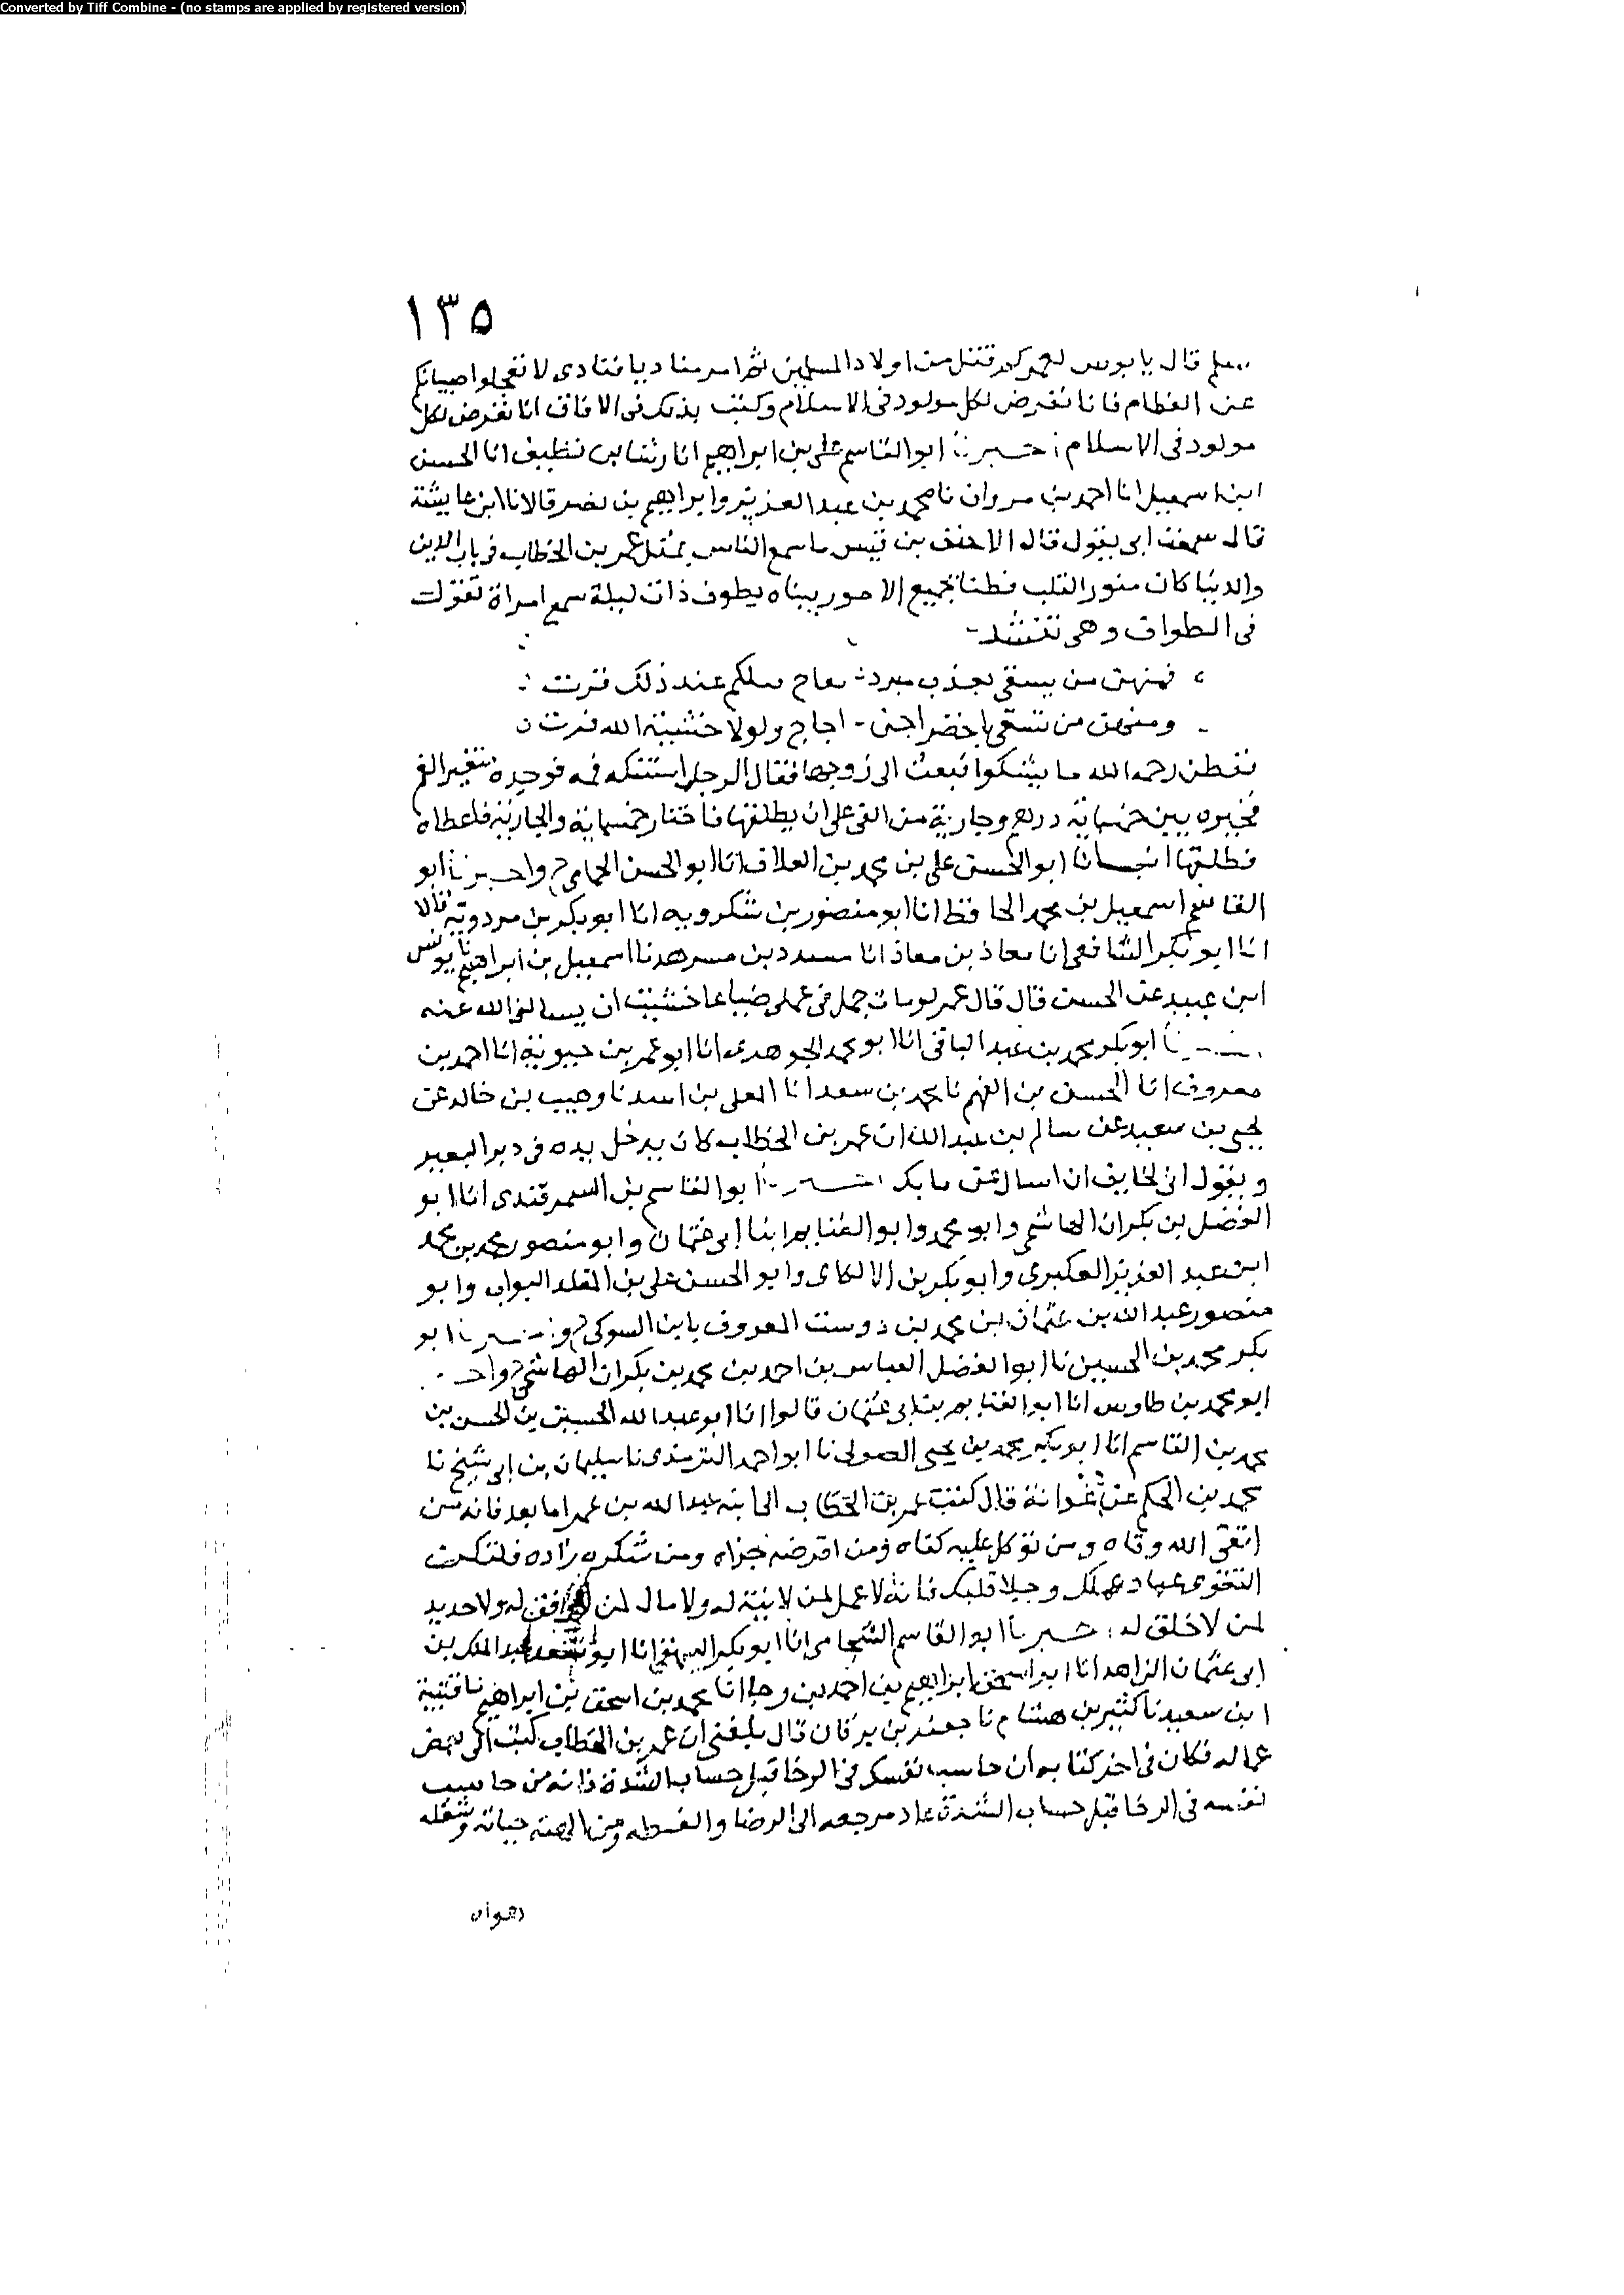 Converted by Tiff Combine - (no stamps are applied by registered version)
١٣٥
سلم قال يا بوس لعمر كم قتل من اولاد المسلمين ثم امر مناديا فنادى لا تعجلوا صبيانكم
عن الفطام فانا نفرض لكل مولود فى الاسلام وكتب بذلك فى الافاق انا نفرض لكل
مولود فى الاسلام اخبرنا ابو القاسم على بن ابراهيم انا رشا بن نظيف انا الحسن
ابن اسمعيل انا احمد بن مروان نا محمد بن عبد العزيز وابراهيم بن نصر قالا نا ابن عايشة
قال سمعت ابى يقول قال الاحنف بن قيس ما سمع الناس بمثل عمر بن الخطاب فى باب الدين
والدنيا كان منور القلب فطنا بجميع الامور بيناه يطوف ذات ليلة سمع امراة تقول
فى الطواف وهى تنشد
فمنهن من يسقى بعذب مبرد نعاح فتلكم عند ذلك قرت
ومنهن من تسقى باخضر اجن اجاج ولولا خشية الله فرت
نفطن رحمه الله ما يشكوا فبعث الى زوجها فقال لرجل استنكه فمه فوجده متغير الفم
فخيره بين خمسماية درهم وجارية من الفى على ان يطلقها فاختار خمسماية والجارية فاعطاه
فطلقها انبانا ابو الحسن على بن محمد بن العلاف انا ابو الحسن الحمامى ح واخبرنا ابو
القاسم اسمعيل بن محمد الحافظ انا ابو منصور بن شكرويه انا ابو بكر بن مردويه قالا
انا ابو بكر الشافعى انا معاذ بن معاذ انا مسدد بن مسرهد نا اسمعيل بن ابراهيم نا يونس
ابن عبيد عن الحسن قال قال عمر لو مات جمل فى عملى ضياعا خشيت ان يسالنى الله عنه
اخبرنا ابو بكر محمد بن عبد الباقى انا ابو محمد الجوهرى انا ابو عمر بن حيوية انا احمد بن
معروف انا الحسن بن الفهم نا محمد بن سعد انا المعلى بن اسد نا وهيب بن خالد عن
يحيى بن سعيد عن سالم بن عبد الله ان عمر بن الخطاب كان يدخل يده فى دبر البعير
ويقول انى لخايف ان اسال عن ما بك اخبرنا ابو القاسم بن السمرقندى انا ابو
الفضل بن بكران الهاشمى وابو محمد وابو الغنايم ابنا ابى عثمان وابو منصور محمد بن محمد
ابن عبد العزيز العكبرى وابو بكر بن الالكاى وابو الحسن على بن المقلد البواب وابو
منصور عبد الله بن عثمان بن محمد بن دوست المعروف بابن السوكى ح واخبرنا ابو
بكر محمد بن الحسين نا ابو الفضل العباس بن احمد بن محمد بن بكران الهاشمى ح واخـ
ابو محمد بن طاوس انا ابو الغنايم بن ابى عثمان قالوا انا ابو عبد الله الحسين بن الحسن بن
محمد بن القاسم انا ابو بكر محمد بن يحيى الصولى نا ابو احمد الترمذى نا سليمان بن ابى شيخ نا
محمد بن الحكم عن عوانة قال كتب عمر بن الخطاب الى ابنه عبد الله بن عمر اما بعد فانه من
اتقى الله وقاه ومن توكل عليه كفاه ومن اقرضه جزاه ومن شكره زاده فلتكن
التقوى عماد عملك وجلا قلبك فانه لا عمل لمن لا نية له ولا مال لمن لا رفق له ولا جديد
لمن لا خلق له اخبرنا ابو القاسم الشحامى انا ابو بكر البيهقى انا ابو سعد عبد الملك بن
ابى عثمان الزاهد انا ابو اسحق ابراهيم بن احمد بن رجا انا محمد بن اسحق بن ابراهيم نا قتيبة
ابن سعيد نا كثير بن هشام نا جعفر بن برقان قال بلغنى ان عمر بن الخطاب كتب الى بعض
عماله فكان فى اخر كتابه ان حاسب نفسك فى الرخا قبل حساب الشدة فانه من حاسب
نفسه فى الرخا قبل حساب الشدة عاد مرجعه الى الرضا والغبطه ومن الهته حياته وشغله
هواه